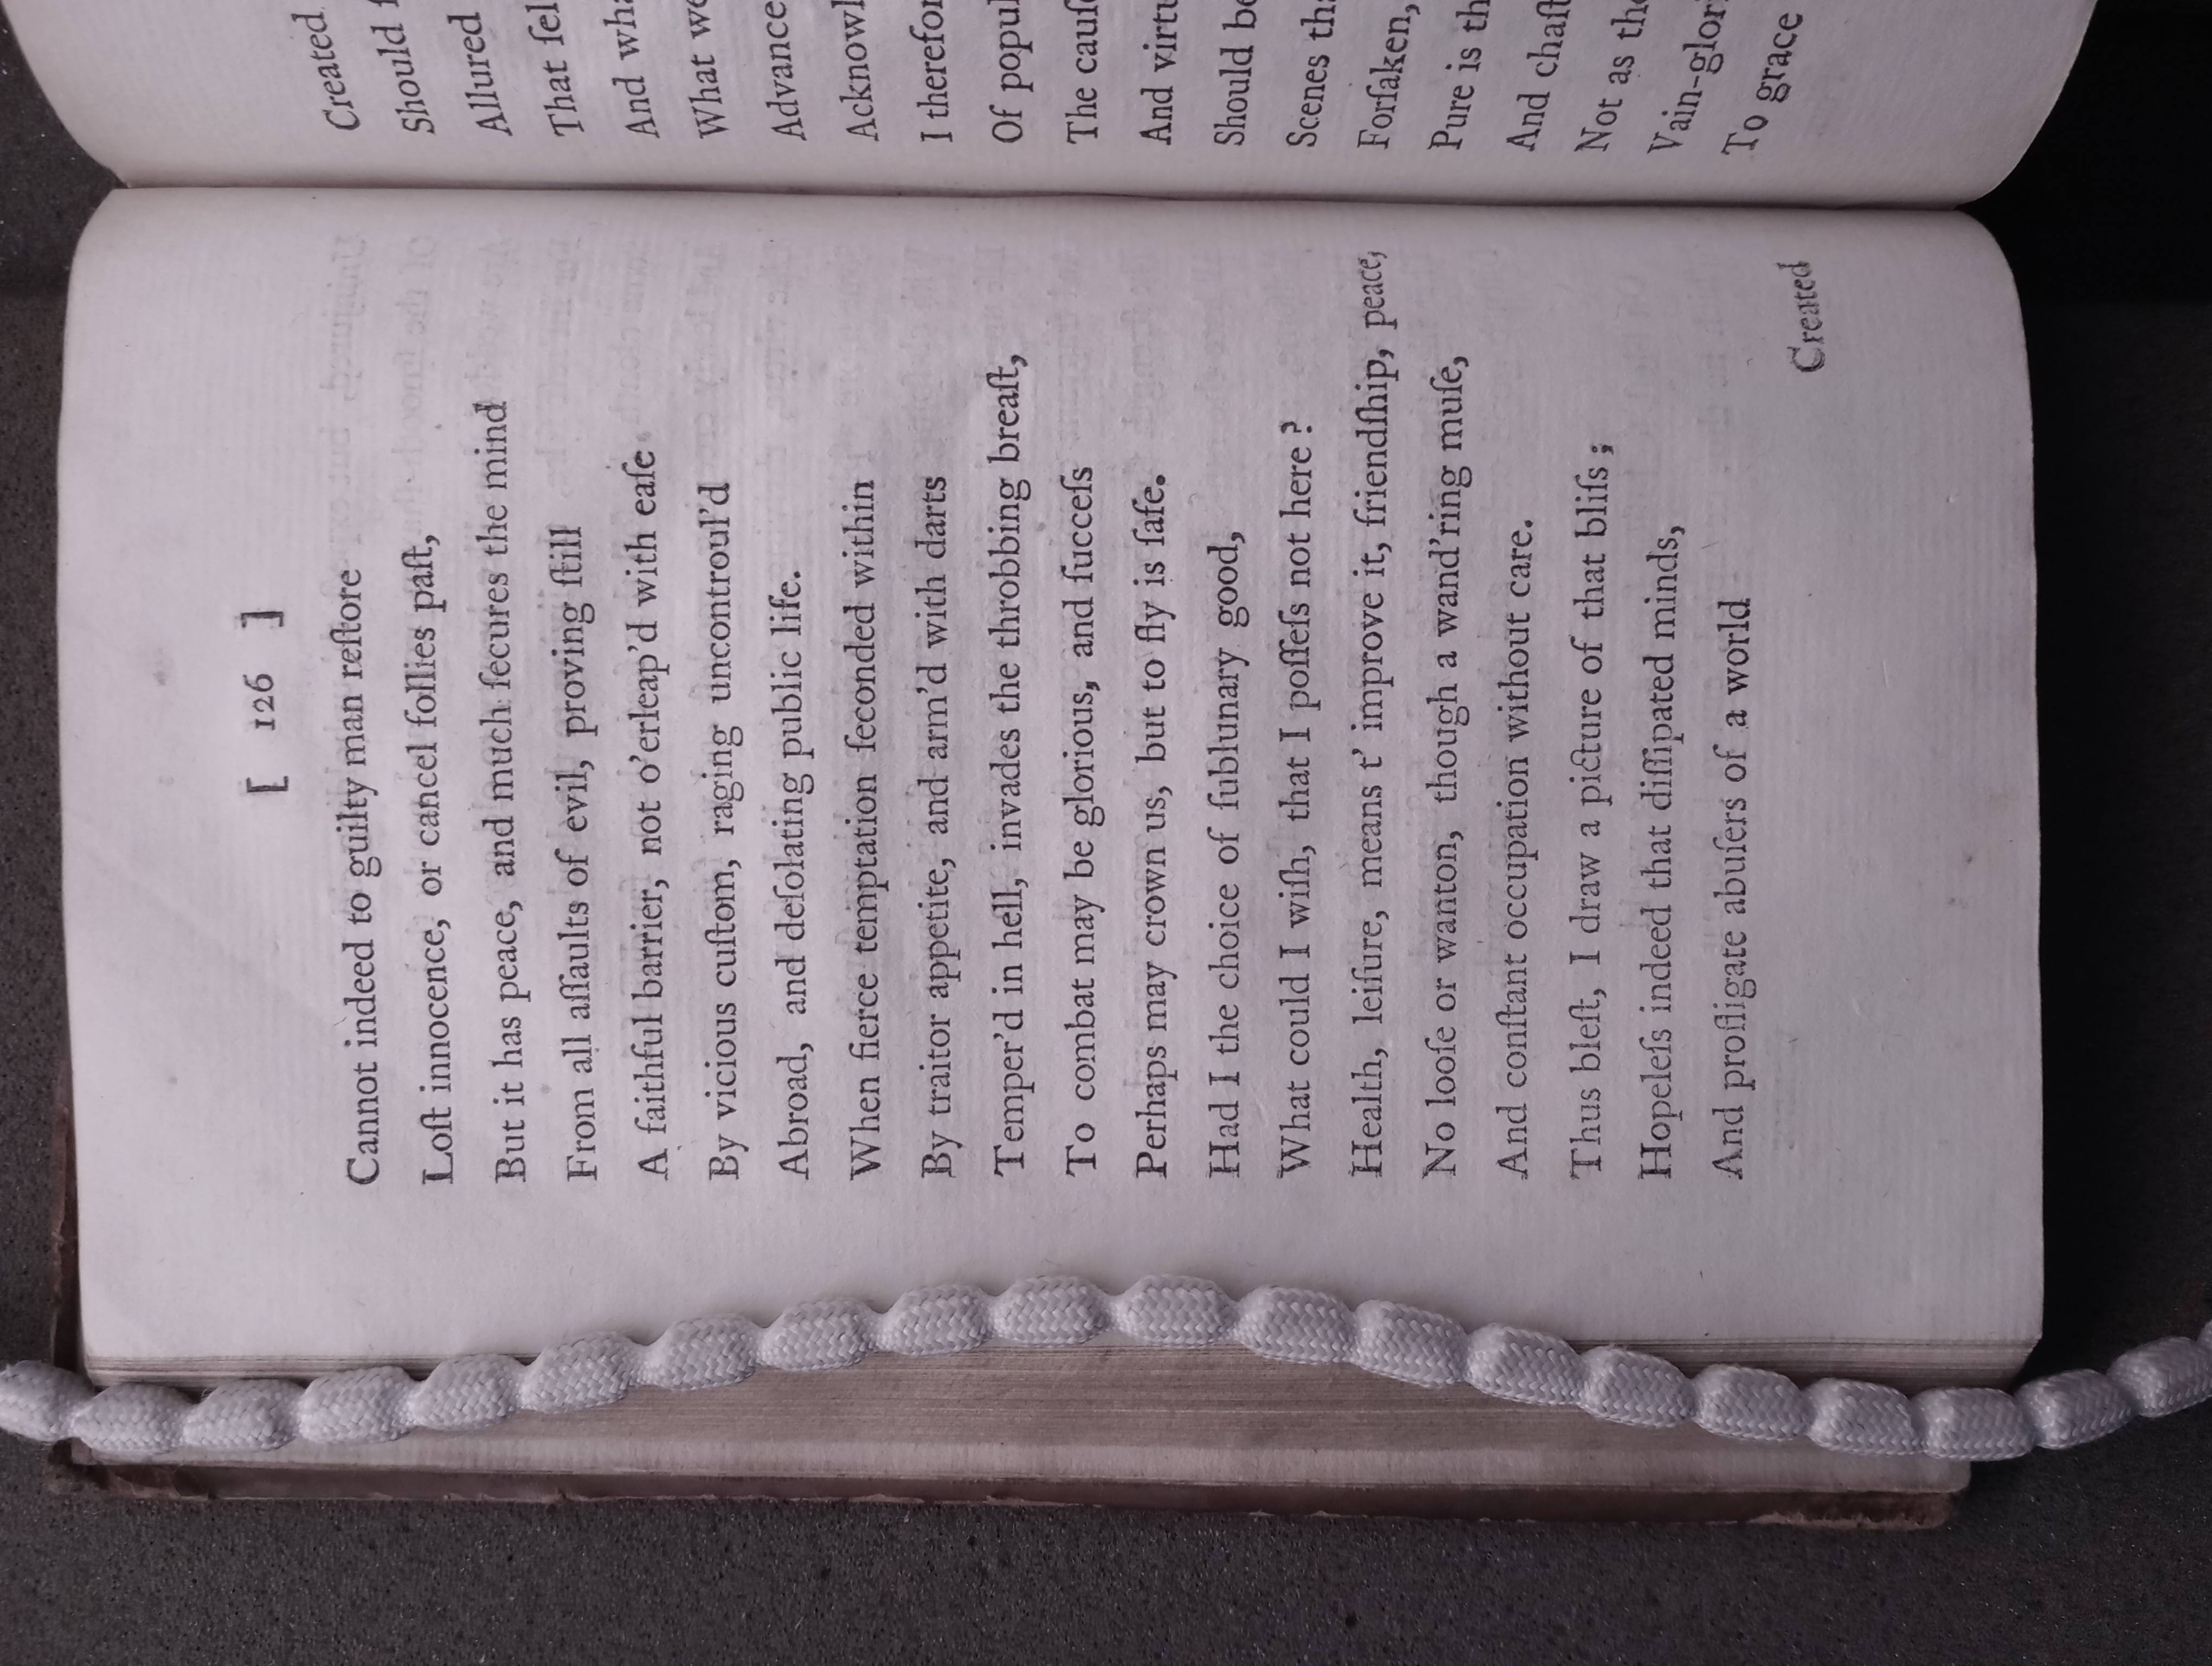 [ 126 ]
Cannot indeed to guilty man reſtore
Loſt innocence, or cancel follies paſt,
But it has peace, and much ſecures the mind
From all aſſaults of evil, proving ſtill
A faithful barrier, not o'erleap'd with eaſe
By vicious cuſtom, raging uncontroul'd
Abroad, and deſolating public life.
When fierce temptation ſeconded within
By traitor appetite, and arm'd with darts
Temper'd in hell, invades the throbbing breaſt,
To combat may be glorious, and ſucceſs
Perhaps may crown us, but to fly is ſafe.
Had I the choice of ſublunary good,
What could I wiſh, that I poſſeſs not here?
Health, leiſure, means t' improve it, friendſhip, peace,
No looſe or wanton, though a wand'ring muſe,
And conſtant occupation without care.
Thus bleſt, I draw a picture of that bliſs;
Hopeleſs indeed that diſſipated minds,
And profligate abuſers of a world
Created
Created
Should
Allured
That
And
What
Advance
Acknowl
I
Of popul
The
And virtu
Should
Scenes
Forſaken,
Pure is
And
Not as
Vain-glor
To grace